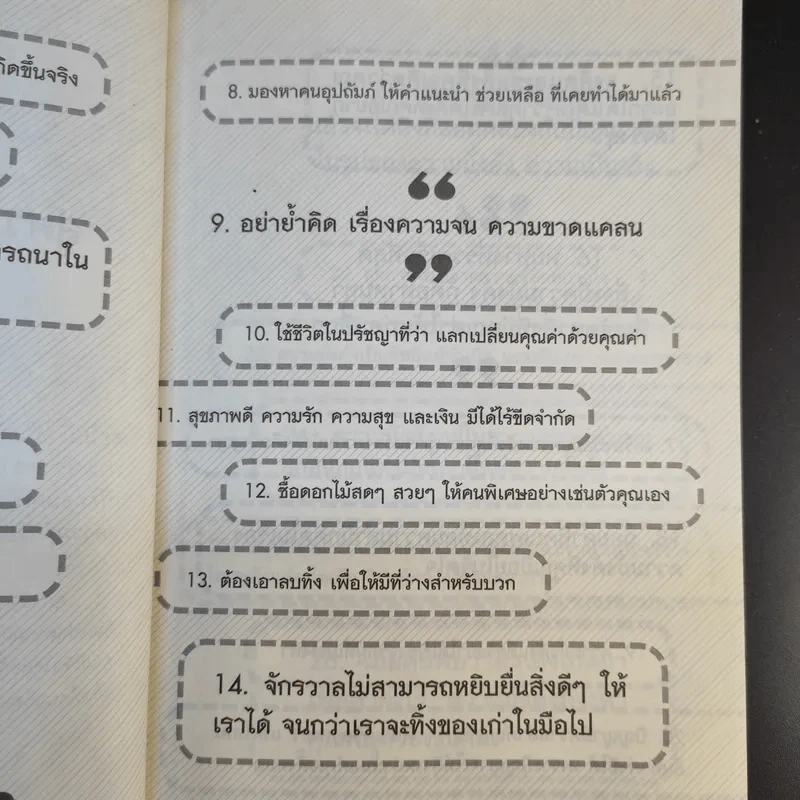 กิดขึ้นจริง
รถนาใน
8. มองหาคนอุปถัมภ์ ให้คำแนะนำ ช่วยเหลือ ที่เคยทำได้มาแล้ว
“
9. อย่าย้ำคิด เรื่องความจน ความขาดแคลน
”
10. ใช้ชีวิตในปรัชญาที่ว่า แลกเปลี่ยนคุณค่าด้วยคุณค่า
11. สุขภาพดี ความรัก ความสุข และเงิน มีได้ไร้ขีดจำกัด
12. ซื้อดอกไม้สดๆ สวยๆ ให้คนพิเศษอย่างเช่นตัวคุณเอง
13. ต้องเอาลบทิ้ง เพื่อให้มีที่ว่างสำหรับบวก
14. จักรวาลไม่สามารถหยิบยื่นสิ่งดีๆ ให้
เราได้ จนกว่าเราจะทิ้งของเก่าในมือไป